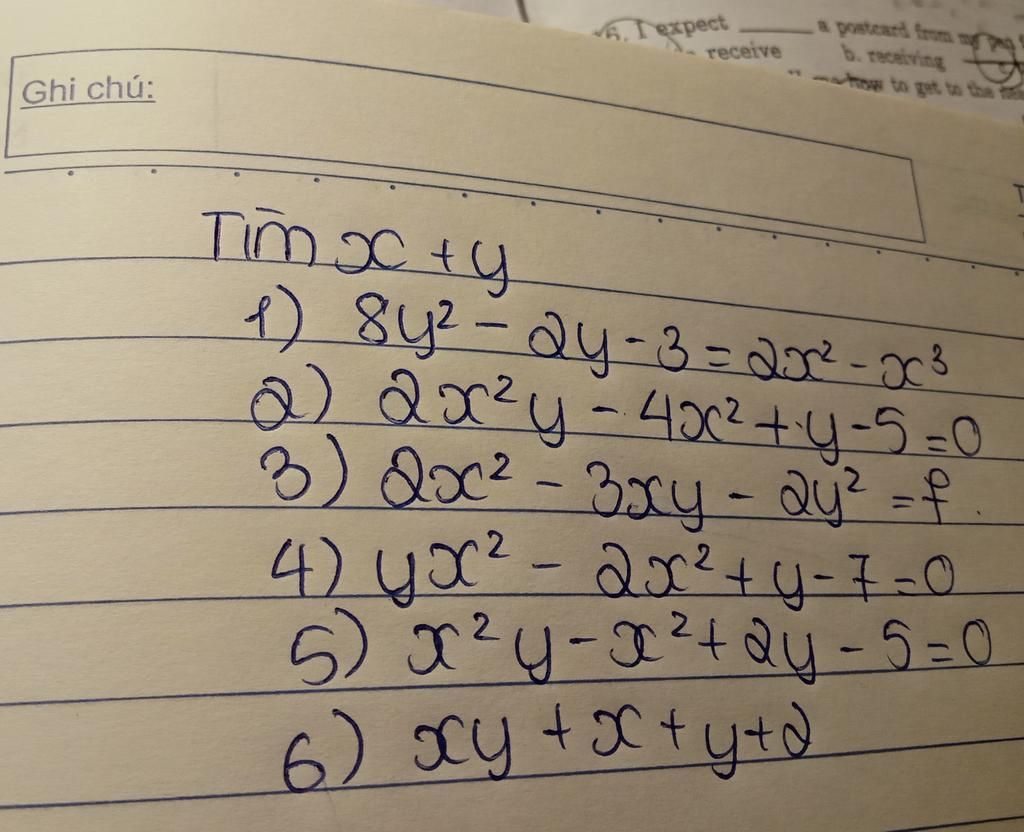 16. I expect ____ a postcard from my
receive b. receiving
how to get to the
Ghi chú:
Tìm x + y
1) 8y² - 2y - 3 = 2x² - x³
2) 2x²y - 4x² + y - 5 = 0
3) 2x² - 3xy - 2y² = f.
4) yx² - 2x² + y - 7 = 0
5) x²y - x² + 2y - 5 = 0
6) xy + x + y + 2